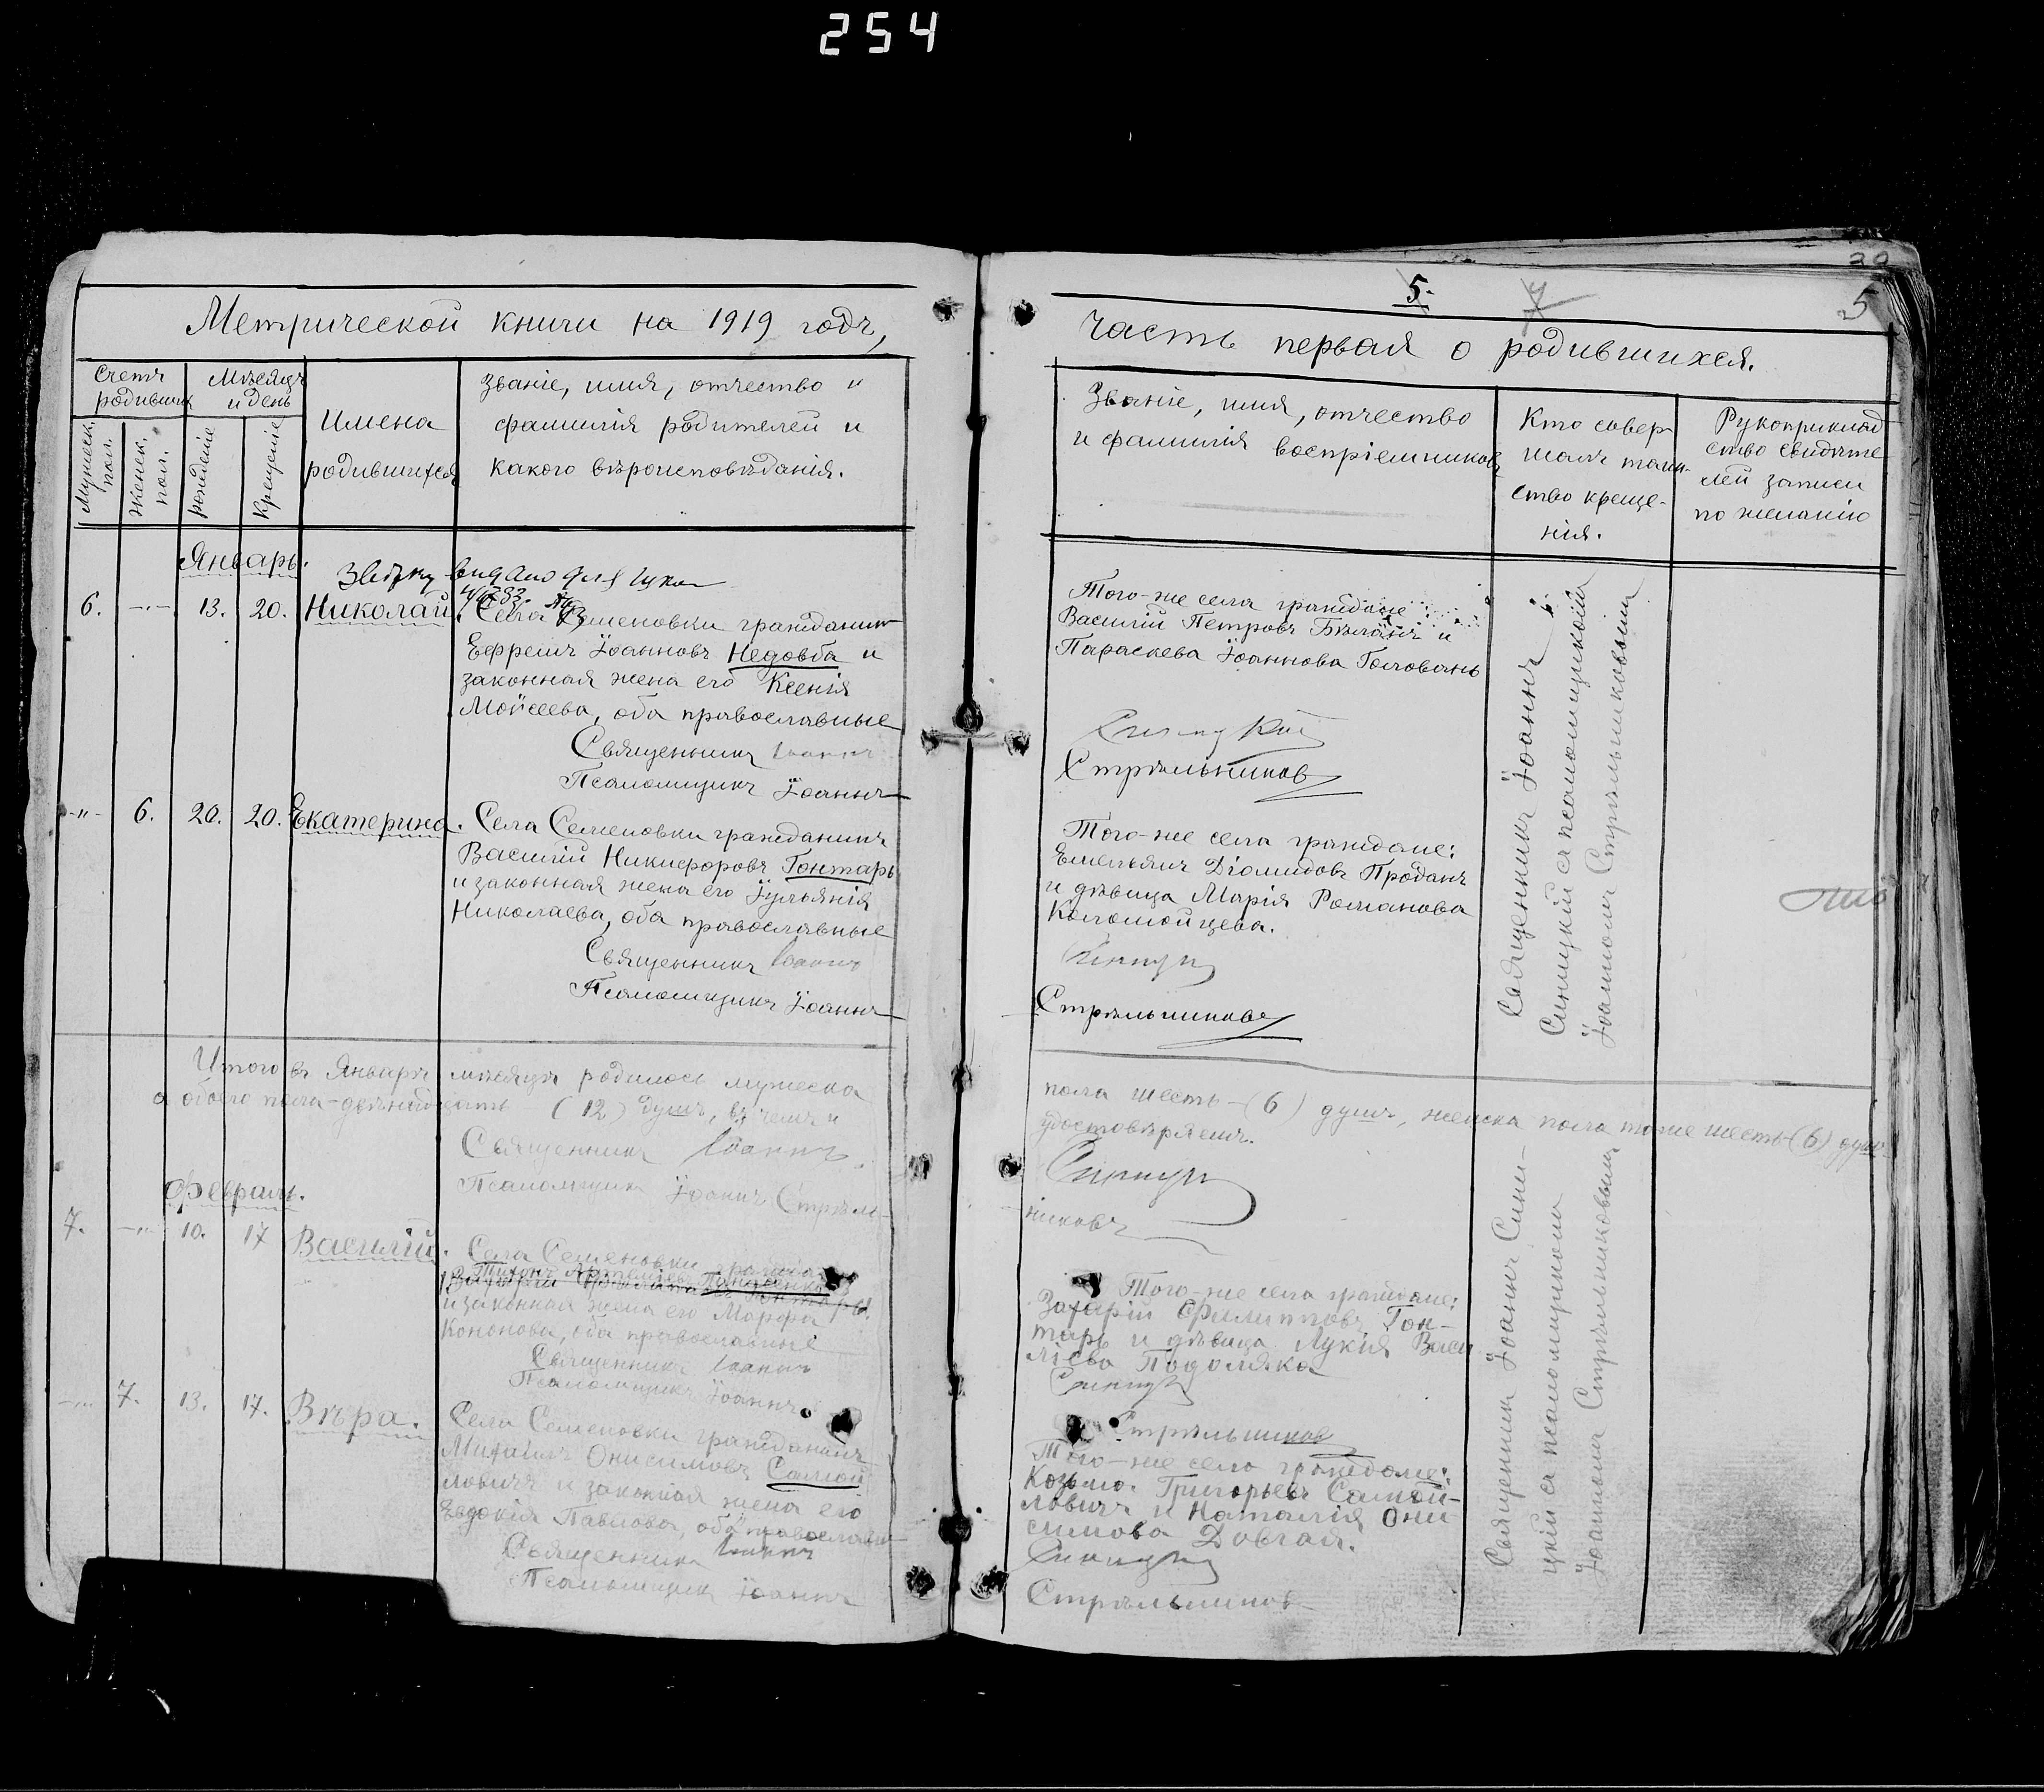 254
Метрической книги на 1919 годъ,
счетъ родивших
Мѣсяцъ и день
Имена родившихся
Мужеск. пол.
Женск. пол.
рожденіе
крещеніе
Званіе, имя, отчество и
фамилія родителей и
какого вѣроисповѣданія.
Январь.
6. 13. 20. Николай. Села Семеновки гражданинъ
Ефремъ Іоанновъ Недовба и
законная жена его Ксенія
Мойсеева, оба православные
Священникъ Іоаннъ
Псаломщикъ Іоаннъ
-"- 6. 20. 20. Екатерина. Села Семеновки гражданинъ
Василій Никифоровъ Гонтарь
и законная жена его Іуліянія
Николаева, оба православные
Священникъ Іоаннъ
Псаломщикъ Іоаннъ
Итого въ Январѣ мѣсяцѣ родилось мужеска
а обоего пола двѣнадцать (12) душъ, въ чемъ и
Священникъ Іоаннъ
Псаломщикъ Іоаннъ Стрѣль-
Февраль.
7. 10. 17 Василій. Села Семеновки
Тихонъ
и законная жена его Марфа
Кононова, оба православные
Священникъ Іоаннъ
Псаломщикъ Іоаннъ
7. 13. 17. Вѣра. Села Семеновки гражданинъ
Михаилъ Онисимовъ Самой
ловичъ и законная жена его
Евдокія Павлова, оба православные
Священникъ Іоаннъ
Псаломщикъ Іоаннъ
5.
5
часть первая о родившихся.
Званіе, имя, отчество
и фамилія воспріемниковъ
Кто совер-
шалъ таин-
ство креще-
нія.
Рукоприклад
ство свидѣте
лей записи
по желанію
Того-же села граждане
Василій Петровъ Бѣланъ и
Параскева Іоаннова Головань
Синицкій
Стрѣльников
Того-же села граждане:
Емельянъ Діомидовъ Проданъ
и дѣвица Марія Романова
Коломойцева.
Стрѣльников
пола шесть-(6) душъ, женска пола тоже шесть-(6) душъ
удостовѣряемъ.
никовъ
Того-же села граждане:
Захарій Филипповъ Гон-
тарь и дѣвица Лукія Васи
ліева Подоляка
Стрѣльников
Того-же села граждане:
Козьма Григорьевъ Самой-
ловичъ и Наталія Они
симова Довгая.
Стрѣльников
Священникъ Іоаннъ
Синицкій съ псаломщикомъ
Іоанномъ Стрѣльниковымъ
Священникъ Іоаннъ Сини-
цкій съ псаломщикомъ
Іоанномъ Стрѣльниковымъ